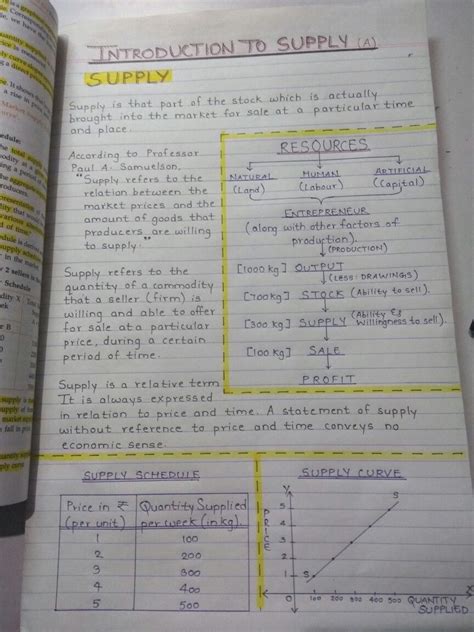 INTRODUCTION TO SUPPLY (A)
SUPPLY
Supply is that part of the stock which is actually
brought into the market for sale at a particular time
and place.
According to Professor
Paul A. Samuelson,
"Supply refers to the
relation between the
market prices and the
amount of goods that
producers are willing
to supply."
Supply refers to the
quantity of a commodity
that a seller (firm) is
willing and able to offer
for sale at a particular
price, during a certain
period of time.
RESOURCES
NATURAL HUMAN ARTIFICIAL
(Land) (Labour) (Capital)
ENTREPRENEUR
(along with other factors of
production).
(PRODUCTION)
[1000 kg] OUTPUT
(LESS: DRAWINGS)
[700 kg] STOCK (Ability to sell).
[300 kg] SUPPLY (Ability & Willingness to sell).
[100 kg] SALE
PROFIT
Supply is a relative term
It is always expressed
in relation to price and time. A statement of supply
without reference to price and time conveys no
economic sense.
SUPPLY SCHEDULE
Price in ₹ Quantity Supplied
(per unit) per week (in kg).
1 100
2 200
3 300
4 400
5 500
SUPPLY CURVE
Y
S
5
4
3
2
1
S
PRICE
0 100 200 300 400 500 QUANTITY
SUPPLIED